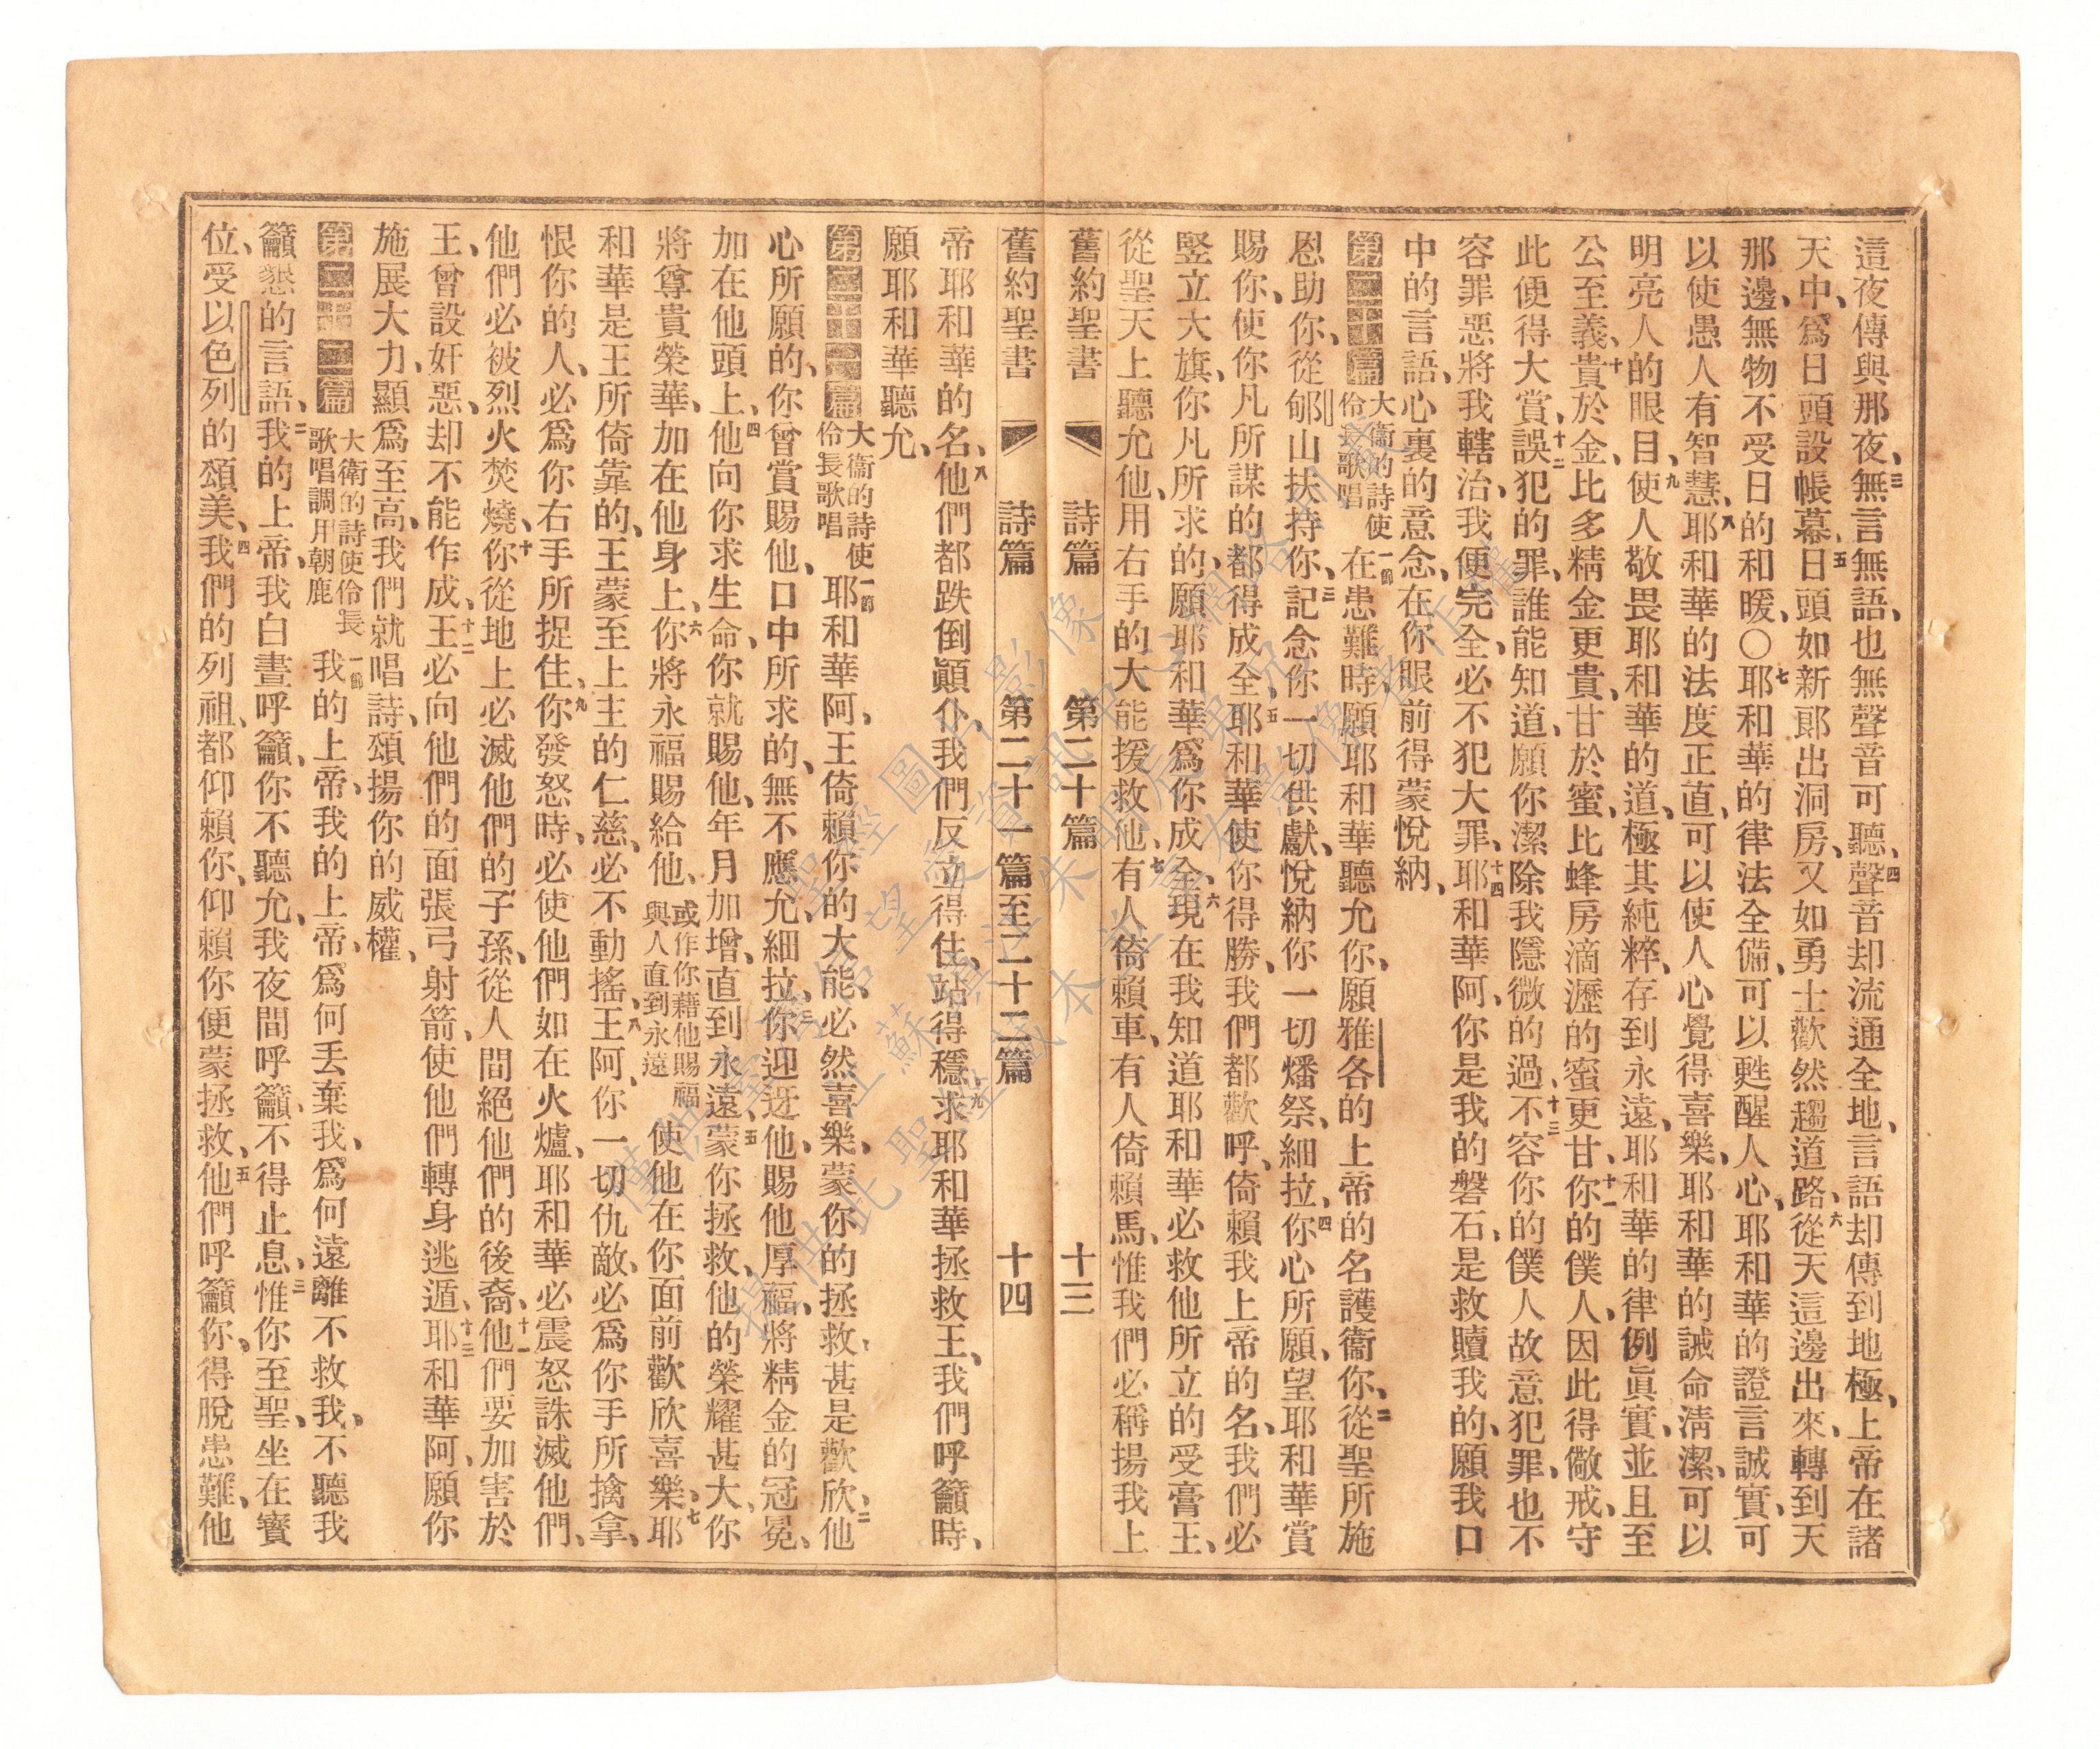 這夜傳與那夜、三無言無語、也無聲音可聽、四聲音却流通全地、言語却傳到地極、上帝在諸
天中、爲日頭設帳幕、五日頭如新郎出洞房、又如勇士歡然趨道路、六從天這邊出來、轉到天
那邊、無物不受日的和暖、○七耶和華的律法全備、可以甦醒人心、耶和華的證言誠實、可
以使愚人有智慧、八耶和華的法度正直、可以使人心覺得喜樂、耶和華的誡命淸潔、可以
明亮人的眼目、九使人敬畏耶和華的道、極其純粹、存到永遠、耶和華的律例眞實、並且至
公至義、十貴於金、比多精金更貴、甘於蜜、比蜂房滴瀝的蜜更甘、十一你的僕人、因此得儆戒、守
此便得大賞、十二誤犯的罪、誰能知道、願你潔除我隱微的過、十三不容你的僕人故意犯罪、也不
容罪惡將我轄治、我便完全、必不犯大罪、十四耶和華阿、你是我的磐石、是救贖我的、願我口
中的言語、心裏的意念、在你眼前得蒙悅納、
第二十篇 大衞的詩使伶長歌唱 一節在患難時、願耶和華聽允你、願雅各的上帝的名護衞你、二從聖所施
恩助你、從郇山扶持你、三記念你一切供獻、悅納你一切燔祭、細拉、四你心所願、望耶和華賞
賜你、使你凡所謀的都得成全、五耶和華使你得勝、我們都歡呼、倚賴我上帝的名、我們必
竪立大旗、你凡所求的、願耶和華爲你成全、六現在我知道耶和華必救他所立的受膏王、
從聖天上聽允他、用右手的大能援救他、七有人倚賴車、有人倚賴馬、惟我們必稱揚我上
舊約聖書 詩篇 第二十篇 十三
舊約聖書 詩篇 第二十一篇至二十二篇 十四
帝耶和華的名、八他們都跌倒顚仆、我們反立得住、站得穩、九求耶和華拯救王、我們呼籲時、
願耶和華聽允、
第二十一篇 大衞的詩使伶長歌唱 一節耶和華阿、王倚賴你的大能、必然喜樂、蒙你的拯救、甚是歡欣、二他
心所願的、你曾賞賜他、口中所求的、無不應允、細拉、三你迎迓他、賜他厚福、將精金的冠冕、
加在他頭上、四他向你求生命、你就賜他、年月加增、直到永遠、五蒙你拯救、他的榮耀甚大、你
將尊貴榮華、加在他身上、六你將永福賜給他、或作你藉他賜福與人直到永遠 使他在你面前歡欣喜樂、七耶
和華是王所倚靠的、王蒙至上主的仁慈、必不動搖、八王阿、你一切仇敵、必爲你手所擒拿、
恨你的人、必爲你右手所捉住、九你發怒時、必使他們如在火爐、耶和華必震怒誅滅他們、
他們必被烈火焚燒、十你從地上必滅他們的子孫、從人間絕他們的後裔、十一他們要加害於
王、曾設奸惡、却不能作成、十二王必向他們的面張弓射箭、使他們轉身逃遁、十三耶和華阿、願你
施展大力、顯爲至高、我們就唱詩、頌揚你的威權、
第二十二篇 大衞的詩使伶長歌唱調用朝鹿 一節我的上帝、我的上帝、爲何丟棄我、爲何遠離不救我、不聽我
籲懇的言語、二我的上帝、我白晝呼籲、你不聽允、我夜間呼籲、不得止息、三惟你至聖、坐在寶
位、受以色列的頌美、四我們的列祖、都仰賴你、仰賴你便蒙拯救、五他們呼籲你、得脫患難、他